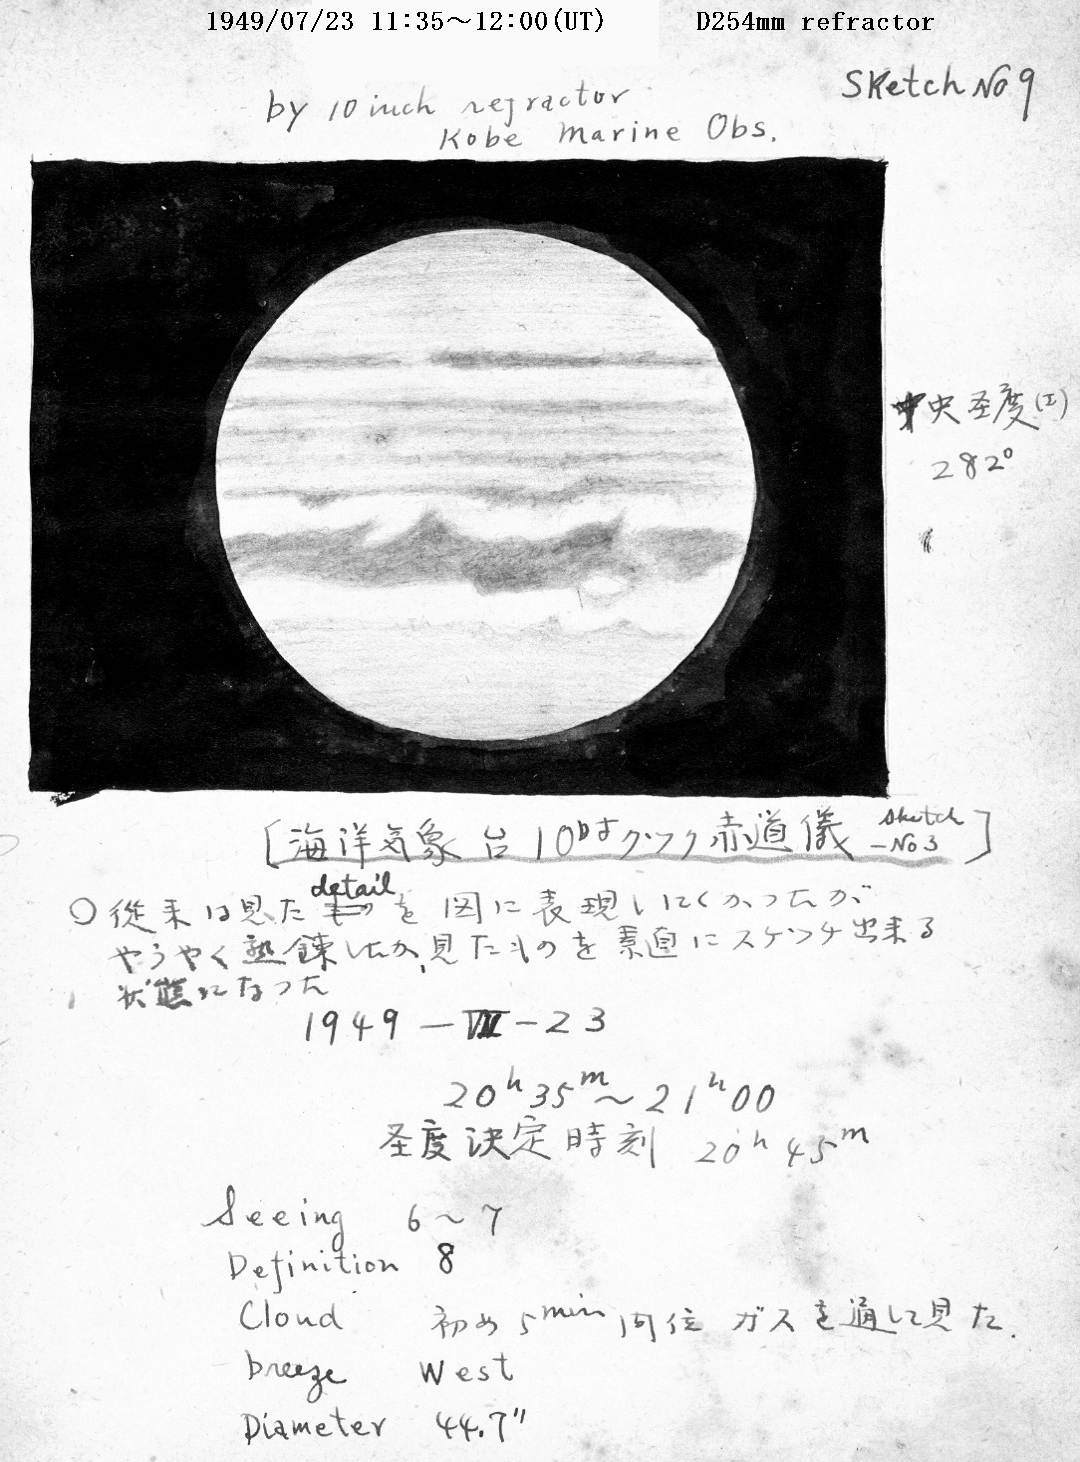 1949/07/23 11:35～12:00(UT) D254mm refractor
Sketch No 9
by 10 inch refractor
Kobe Marine Obs.
中央圣度(I)
282°
[海洋気象台10吋クック赤道儀 sketch -No3]
○從来は見た detail を図に表現しにくかったが
やうやく熟錬したか、見たものを素直にスケッチ出来る
状態になった
1949-VII-23
20h35m～21h00
圣度決定時刻 20h45m
Seeing 6～7
Definition 8
Cloud 初め5min間位ガスを通して見た.
breeze West
Diameter 44.7"